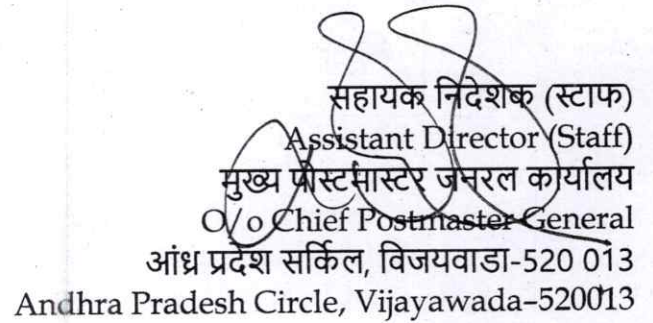 सहायक निदेशक (स्टाफ)
Assistant Director (Staff)
मुख्य पोस्टमास्टर जनरल कार्यालय
O/o Chief Postmaster General
आंध्र प्रदेश सर्किल, विजयवाडा-520 013
Andhra Pradesh Circle, Vijayawada-520013